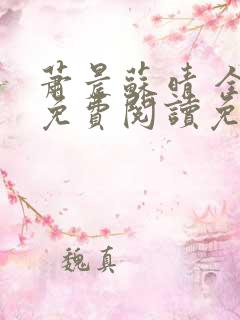 蕭景蘇晴 全
免費閱讀免
魏真